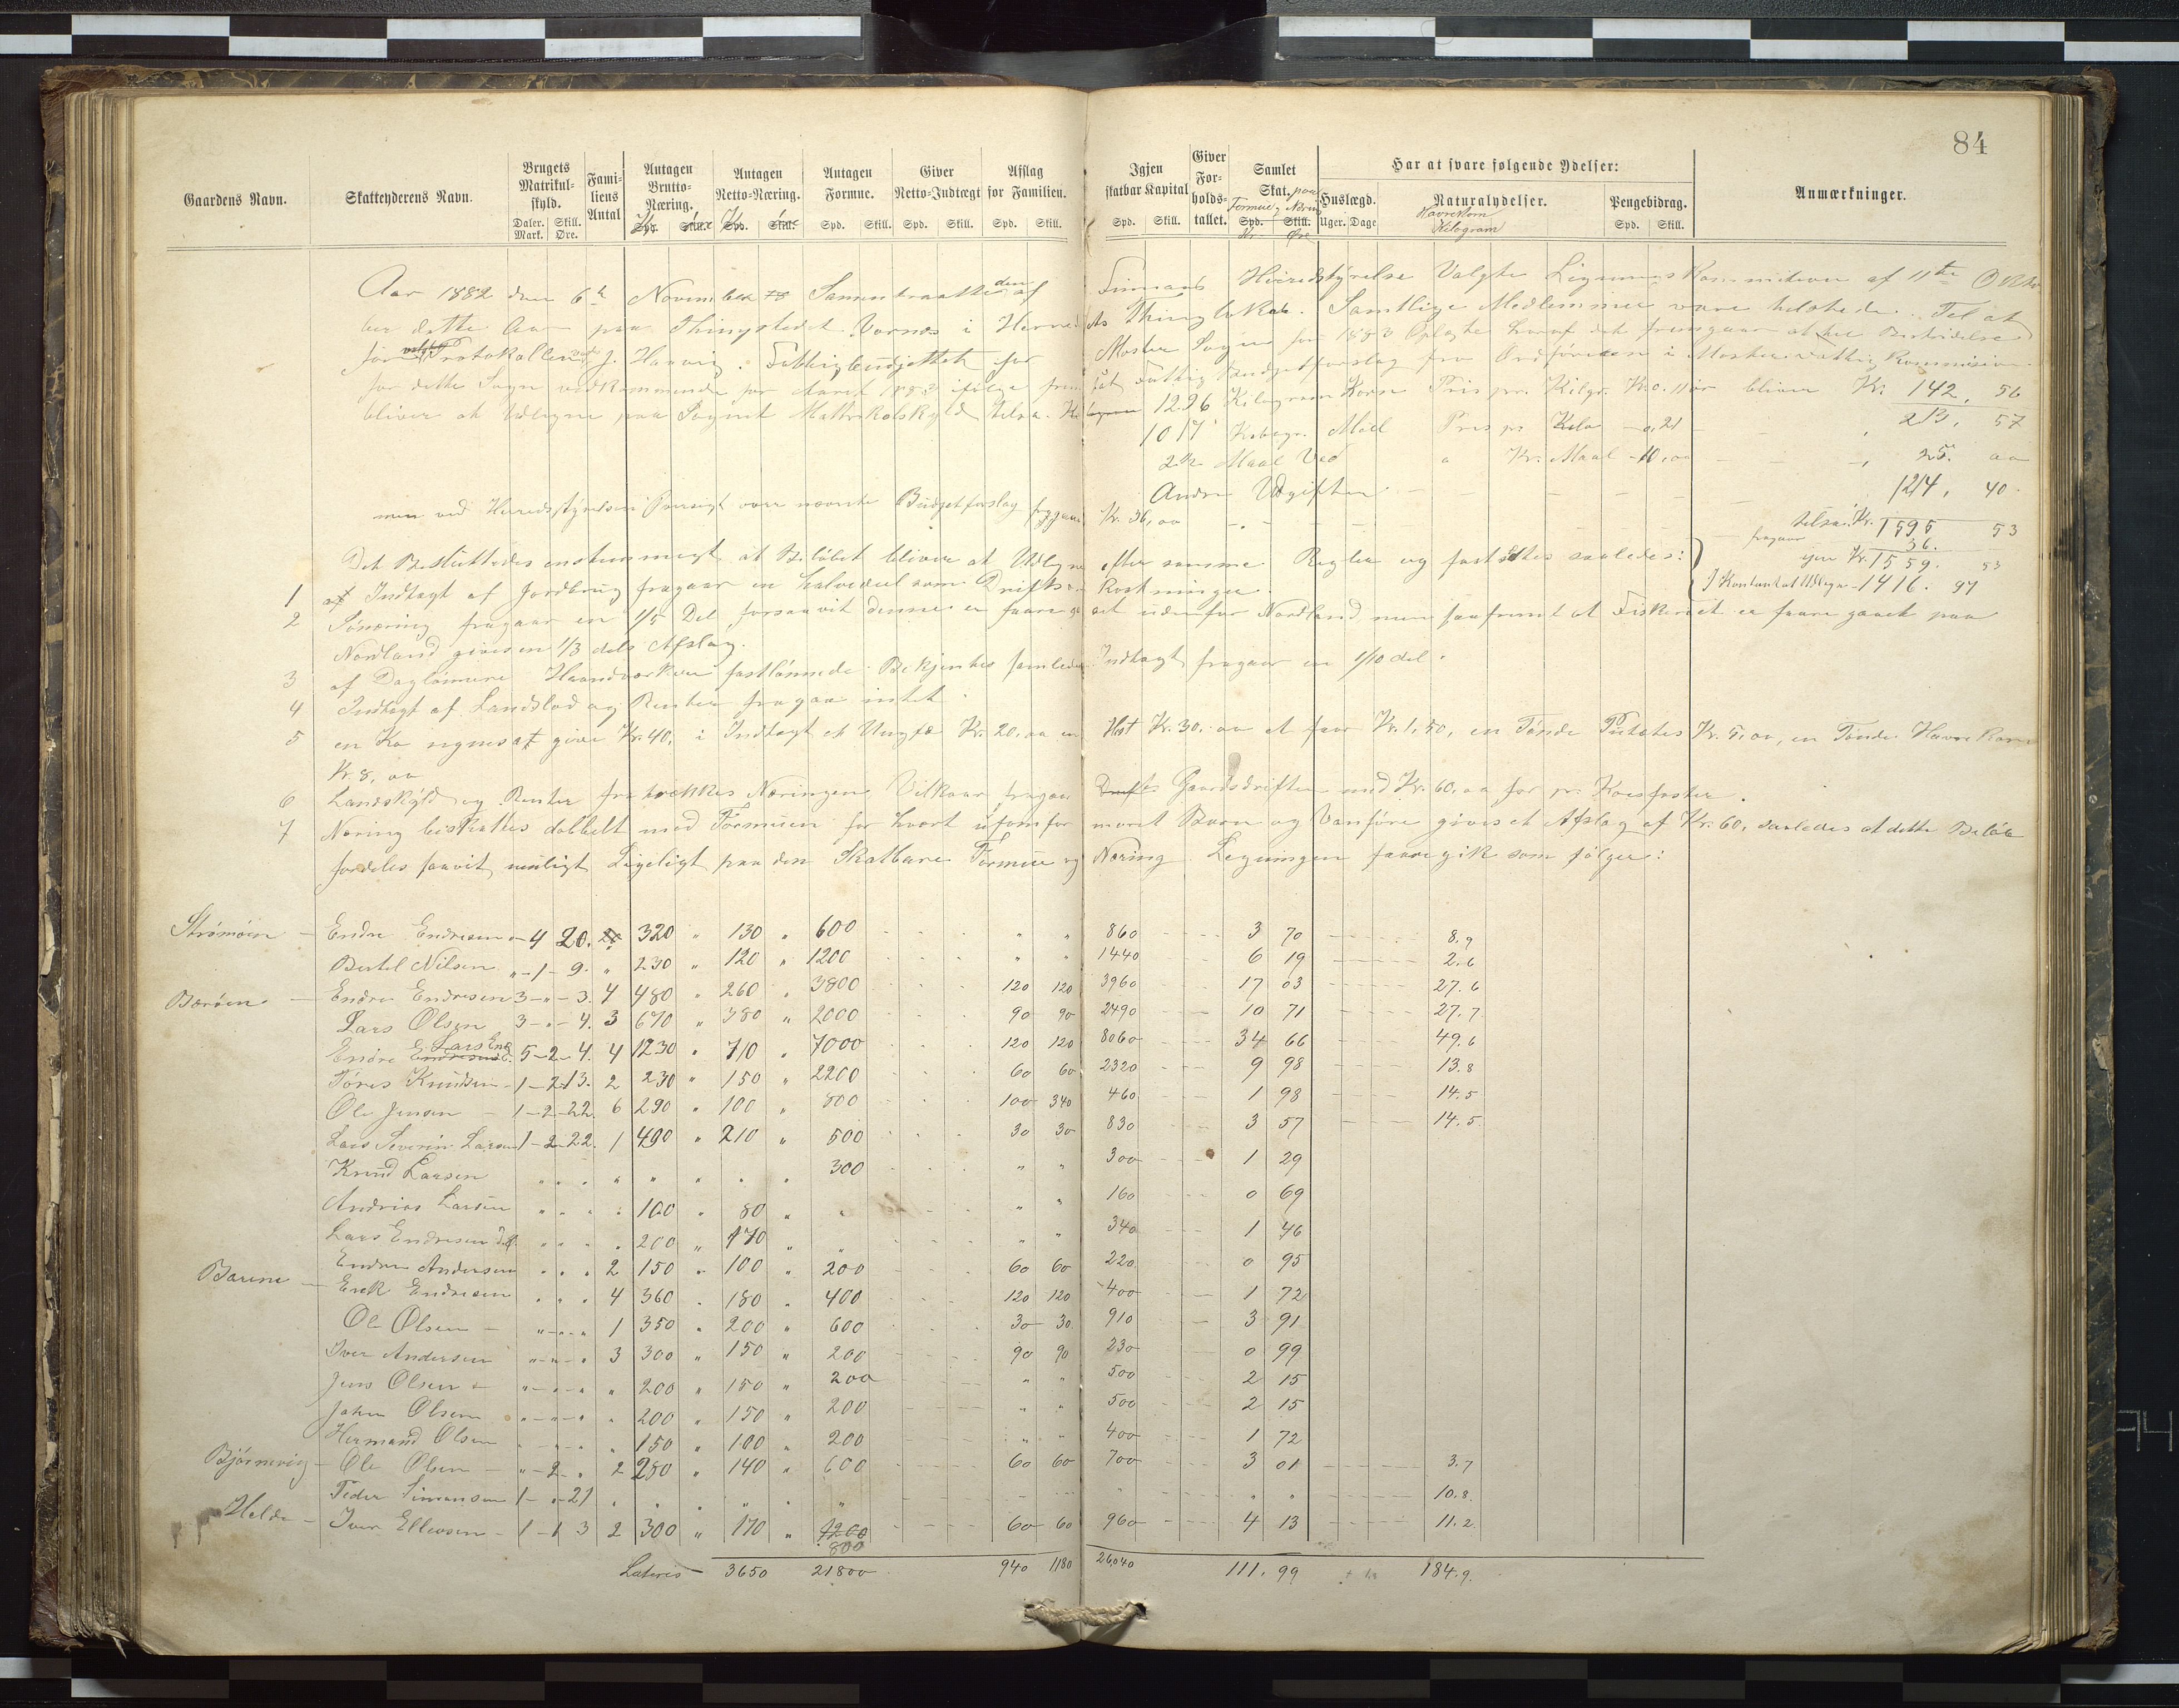 84
Gaardens Navn. Skatteyderens Navn. Brugets Matrikul-skyld. Familiens Antal Antagen Brutto-Næring. Antagen Netto-Næring. Antagen Formue. Giver Netto-Indtægt Afslag for Familien. Igjen skatbar Kapital Giver Forholds-tallet. Samlet Skat. paa Formue, Næring Har at svare følgende Ydelser: Anmærkninger.
Huslægd. Naturalydelser. Pengebidrag.
Havrekorn Kilogram
Daler. Mark. Skill. Øre. Spd. Skill. Spd. Skill. Spd. Skill. Spd. Skill. Spd. Skill. Spd. Skill. Spd. Skill. Kr. Øre Uger. Dage Spd. Skill.
Aar 1882 den 6te November Sammentraatte den af Finnaas Herredstyrelse Valgte Ligningskommission af 11te Octo
ber dette Aar paa Thingstedet Vornes i Herredets Thinglokale. Samtlige Medlemmer vare tilstede. Til at
føre Protokollen valgtes J. Hanvig. Fattigbudgettet for Moster Sogn for 1883 Oplagte hvoraf det fremgaar at
for dette Sogn vedkommende for Aaret 1883 ifølge Fattig Budgetforslag fra Ordføreren i Moster Fattig Kommission
bliver at Udligne paa Sognets Matrikulskyld 1296 Kilogram Korn Pris pr. Kilogr. Kr. 0.11 bliver Kr. 142, 56
1017 Kilogr. Meel Pris pr. Kilo - 0,21 213, 57
2½ Maal Ved Kr. Maal - 10,00 25. 00
Andre Udgifter 1214, 40
men ved Herredstyrelsen Oversigt over nævnte Budgetforslag fragaar Kr. 36,00
Tilsa. Kr. 1595 53
fragaar 36.
igjen Kr. 1559. 53
I Kontant at Udligne 1416. 97
Det Besluttedes enstemmigt at Beløbet bliver at Udligne efter samme Regler og fastsættes saaledes:
1 af Indtægt af Jordbrug fragaar en halvedeel som Driftsomkostninger.
2 Sønæring fragaar en 1/5 Del forsaavit denne er faaregaaet udenfor Nordland men saafremt at Fiskeriet er faare gaaet paa
Nordland gives en 1/3 dels Afslag.
3 af Dagleiere Haandværkere fastlønnede Betjentes samlede Indtægt fragaar en 1/10 del.
4 Indtægt af Landslod og Renter fragaa intet.
5 en Ko regnes at give Kr. 40, i Indtægt et Ungfæ Kr. 20.00 en Hest Kr. 30.00 et faar Kr. 1,50, en Tønde Potates Kr. 5,00, en Tønde Havre Korn
Kr. 8,00
6 Landskyld og Renter fratrækkes Næringen Vilkaar fragaar Gaardsdriften med Kr. 60,00 for pr. Koesfoster.
7 Næring beskattes dobbelt mod Formuen for hvert uforsørget Barn og Vanføre gives et Afslag af Kr. 60, saaledes at dette Beløb
fordeles saavit muligt Ligeligt paa den Skatbare Formue og Næring. Ligningen faaregik som følger:
Strømøen - Endre Endresen - 4 20. 320 " 130 " 600 " " 860 3 70 8.9
Bertel Nilsen " - 1 - 9. " 230 " 120 " 1200 " " 1440 6 19 2.6
Børøen - Endre Endresen 3 - " - 3. 4 480 " 260 " 3800 120 120 3960 17 03 27.6
Lars Olsen 3 - " - 4. 3 670 " 380 " 2000 90 90 2490 10 71 27.7
Endre Lars End. 5 - 2 - 4. 4 1230 " 710 " 7000 120 120 8060 34 66 49.6
Tøres Knudsen - 1 - 2 - 13. 2 230 " 150 " 2200 60 60 2320 9 98 13.8
Ole Jensen - 1 - 2 - 22. 6 290 " 100 " 800 100 340 460 1 98 14.5
Lars Severin Larsen 1 - 2 - 22. 1 490 " 210 " 500 30 30 830 3 57 14.5
Knud Larsen " " " " " " " " 300 " " 300 1 29
Andrias Larsen " " " " 100 " 80 " " " " 160 0 69
Lars Endresen " " " " 200 " 170 " " " " 340 1 46
Endre Andersen " " " 2 150 " 100 " 200 60 60 220 0 95
Barene - Erik Endresen " " " 4 360 " 180 " 400 120 120 400 1 72
Ole Olsen - " " " 1 350 " 200 " 600 30 30 910 3 91
Iver Andersen " " " 3 300 " 150 " 200 90 90 230 0 99
Jens Olsen " " " " 200 " 150 " 200 " " 500 2 15
Johan Olsen " " " " 200 " 150 " 200 " " 500 2 15
Hermand Olsen " " " " 150 " 100 " 200 " " 400 1 72
Bjørnevig - Ole Olsen - " - 2 - " 2 280 " 140 " 600 60 60 700 3 01 3.7
Peder Simonsen 1 - " - 21 " " " " " " " " " 10.8
Holde - Iver Ellevsen - 1 - 1 3 2 300 " 170 " 1200 800 60 60 960 4 13 11.2
Lateris 3650 21800 940 1180 26040 111. 99 184.9